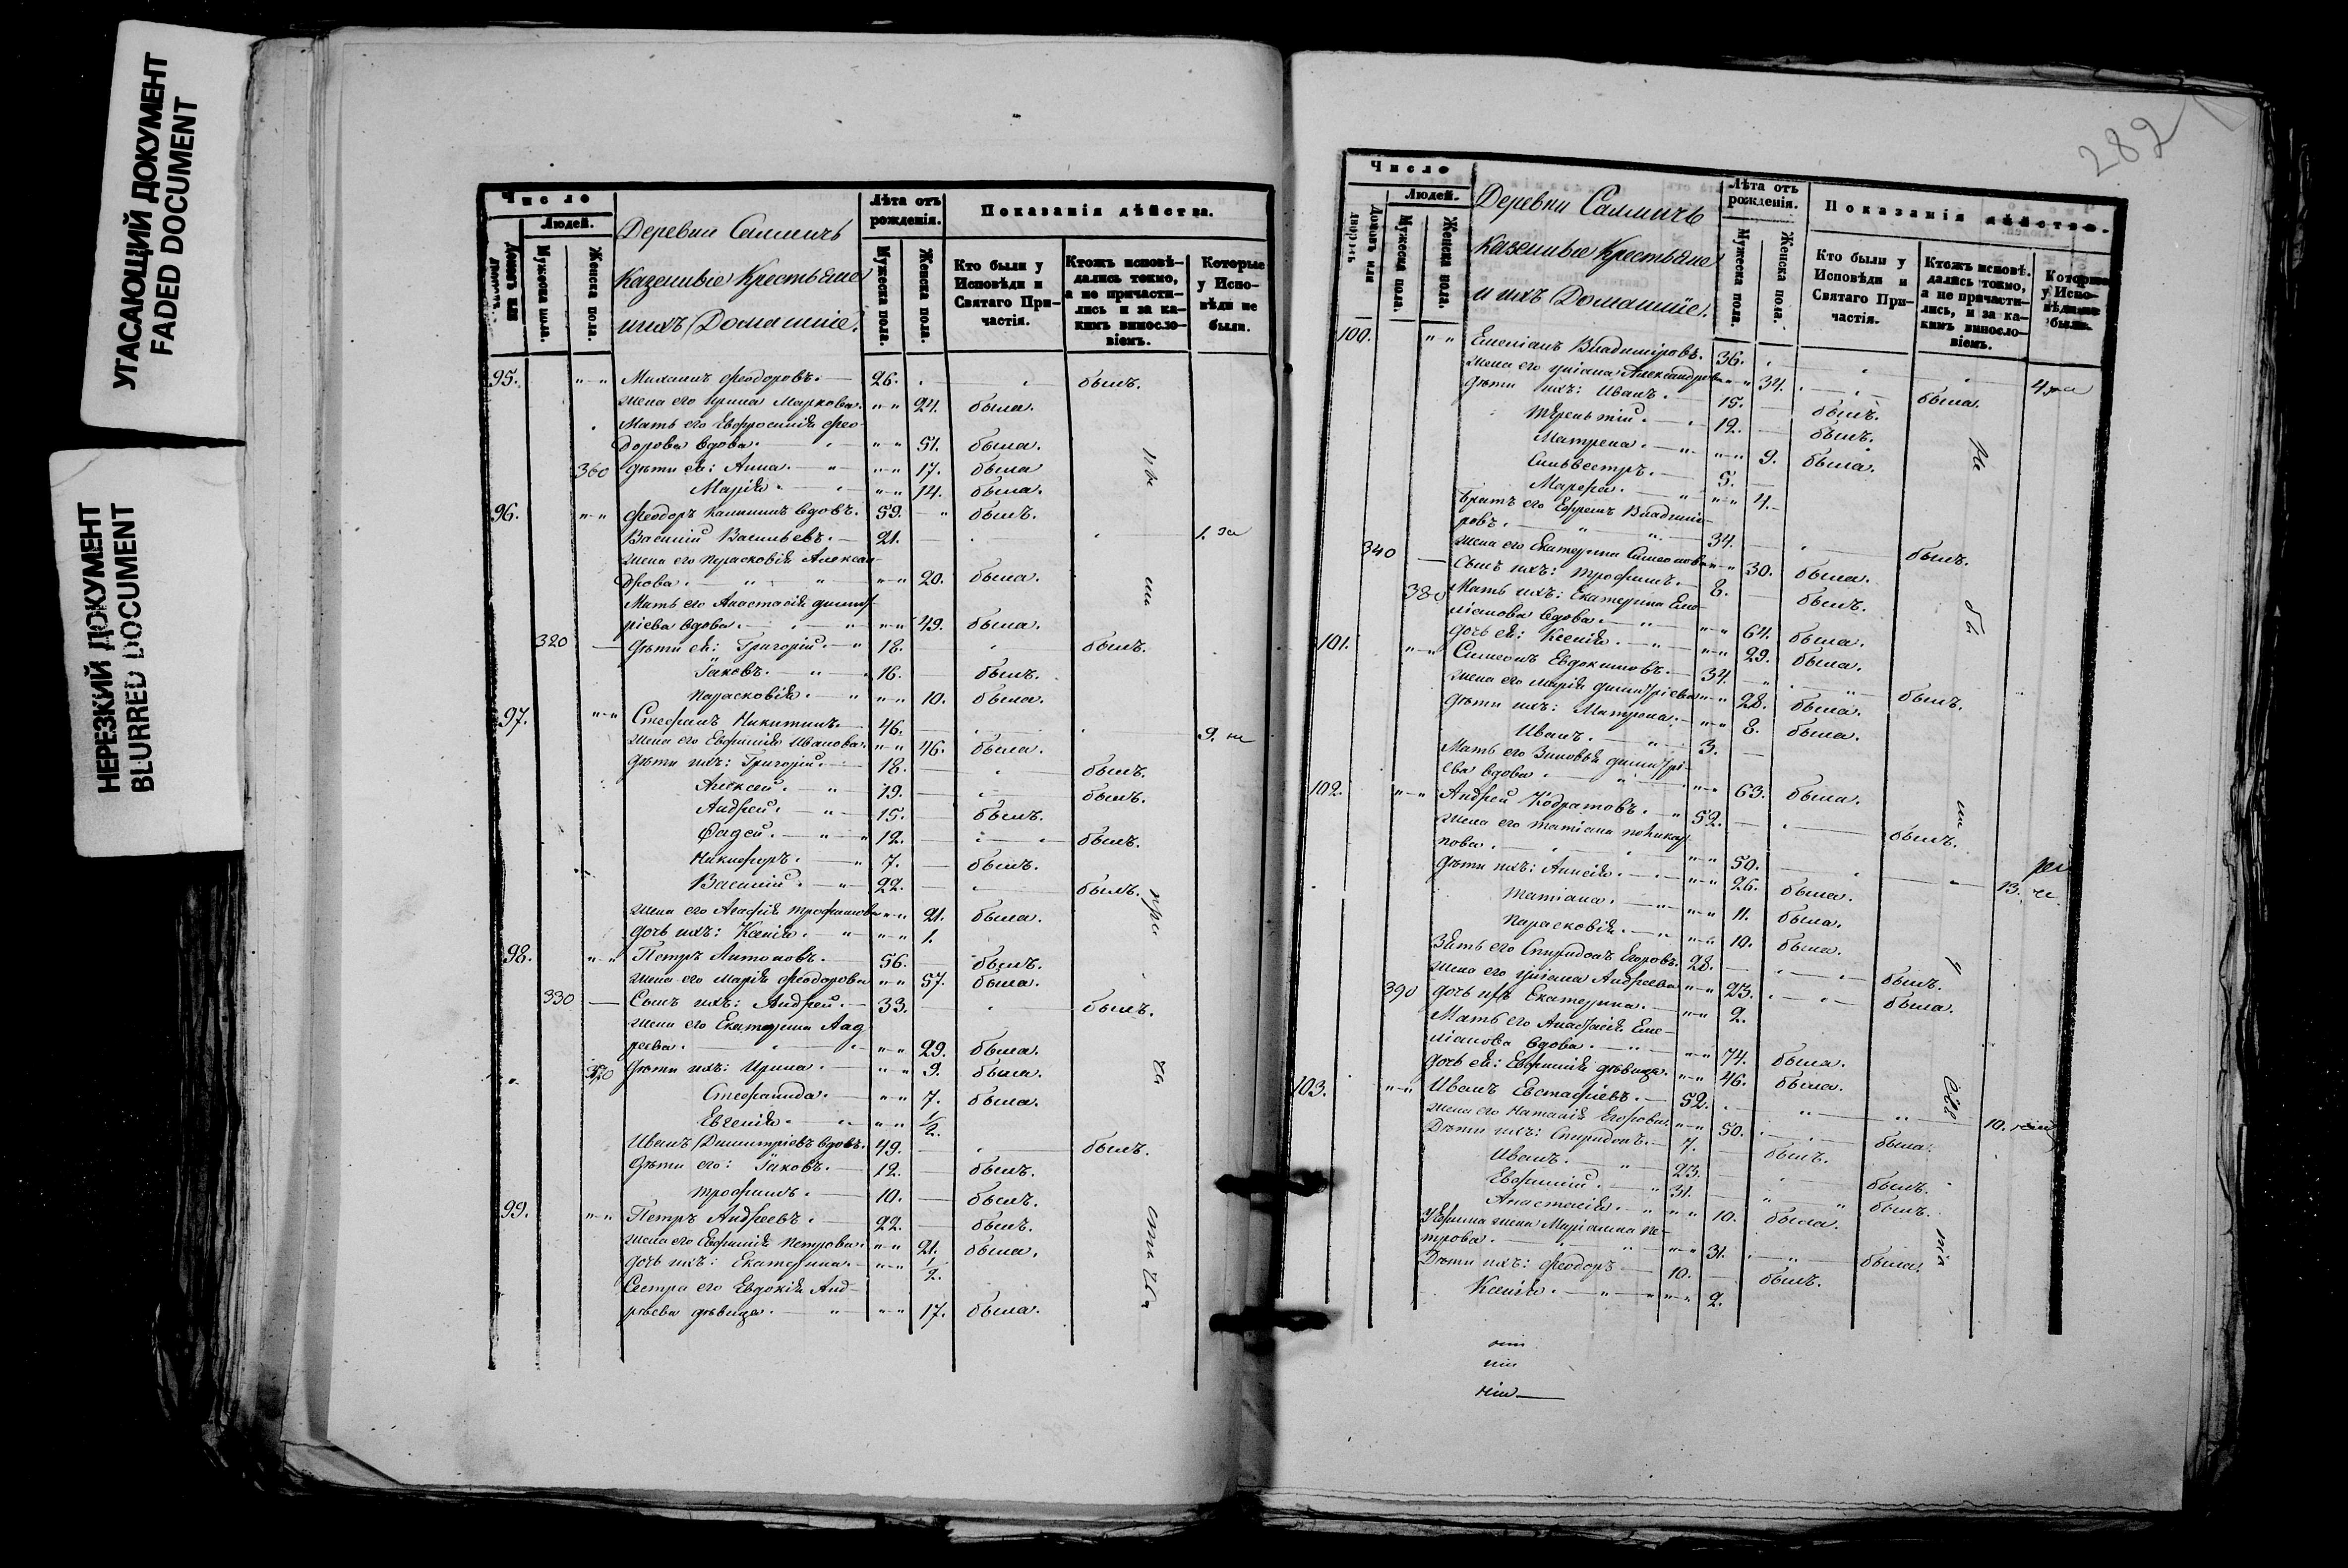 УГАСАЮЩИЙ ДОКУМЕНТ
FADED DOCUMENT
НЕРЕЗКИЙ ДОКУМЕНТ
BLURRED DOCUMENT
Число
Людей.
Домовъ или
Мужеска пола.
Женска пола.
Деревни
Казенные Крестьяне
и ихъ Домашніе.
Лѣта отъ рожденія.
Мужеска пола.
Женска пола.
Показанія дѣйства.
Кто были у Исповѣди и Святаго Причастія.
Ктожъ исповѣдались токмо, а не причастились и за какимъ винословіемъ.
Которые у Исповѣди не были.
95. Михаилъ Феодоровъ. 26. былъ.
жена его Ирина Маркова. 24. была.
Мать его Евфросинія Фео-
дорова вдова. 51. была.
360 Дѣти ея: Анна. 17. была
Марія. 14. была.
96. Феодоръ вдовъ. 59. былъ.
Василій Васильевъ. 21. 1.
жена его Параскевія Алексан-
дрова. 20. была.
Мать его Анастасія Димит-
ріева вдова. 49. была.
320 Дѣти ея: Григорій. 18. былъ.
Іаковъ. 16. былъ.
Парасковія. 10. была.
97. Стефанъ Никитинъ. 46. 9.
жена его Евфимія Иванова. 46. была.
Дѣти ихъ: Григорій. 18. былъ.
Алексей. 19. былъ.
Андрей. 15. былъ.
Фадей. 12. былъ.
Никифоръ. 7. былъ.
Василій. 22. былъ.
жена его Агафія Трофимова 21. была.
дочь ихъ: Ксенія. 1.
98. Петръ Антоновъ. 56. былъ.
жена его Марія Феодорова 57. была.
330 Сынъ ихъ: Андрей. 33. былъ.
жена его Екатерина Анд
реева. 29. была.
370 Дѣти ихъ: Ирина. 9. была.
Стефанида. 7. была.
Евгенія. 1/2.
Иванъ Димитріевъ вдовъ. 49. былъ.
Дѣти его: Іаковъ. 12. былъ.
Трофимъ. 10. былъ.
99. Петръ Андреевъ. 22. былъ.
жена его Евфимія Петрова. 21. была.
дочь ихъ: Екатерина. 1/2.
Сестра его Евдокія Анд-
реева дѣвица. 17. была.
282
Число
Людей.
Домовъ или
Мужеска пола.
Женска пола.
Деревни
Казенные Крестьяне
и ихъ Домашніе.
Лѣта отъ рожденія.
Мужеска пола.
Женска пола.
Показанія дѣйства.
Кто были у Исповѣди и Святаго Причастія.
Ктожъ исповѣдались токмо, а не причастились, и за какимъ винословіемъ.
Которые у Исповѣди не были.
100. Емеліанъ Владиміровъ. 36. 4
жена его Уліана Александрова 34. была.
Дѣти ихъ: Иванъ. 15. былъ.
Терентій. 12. былъ.
Матрена. 9. была.
Сильвестръ. 5.
Марфа. 4.
братъ его Ефремъ Владимі-
ровъ. 34. былъ.
жена его Екатерина Симеонова 30. была.
340 Сынъ ихъ: Трофимъ. 8. былъ.
380 Мать ихъ: Екатерина Еме-
ліанова вдова. 64. была.
дочь ея: Ксенія. 29. была.
101. Симеонъ Евдокимовъ. 34. былъ.
жена его Марія Димитріева 28. была.
Дѣти ихъ: Матрона. 8. была.
Иванъ. 3.
Мать его Зиновья Димитрі-
ева вдова. 63. была.
102. Андрей Кодратовъ. 52. былъ.
жена его Татіана
пова. 50. 13.
Дѣти ихъ: Анисія. 26. была.
Татіана. 11. была.
Парасковія. 10. была.
Зять его Спиридонъ Егоровъ. 28. былъ.
жена его Уліана Андреева 23. была.
390 дочь ихъ Екатерина. 2.
Мать его Анастасія Еме-
ліанова вдова. 74. была.
дочь ея: Евфимія дѣвица. 46. была.
103. Иванъ Евстафіевъ. 52. 10.
жена его Наталія Егорова. 50. была.
Дѣти ихъ: Спиридонъ. 7. былъ.
Иванъ. 23. былъ.
Евфимій. 31. былъ.
Анастасія. 10. была.
У Ефима жена Маріанна Пе-
трова. 31. была.
Дѣти ихъ: Феодоръ 10. былъ.
Ксенія. 2.